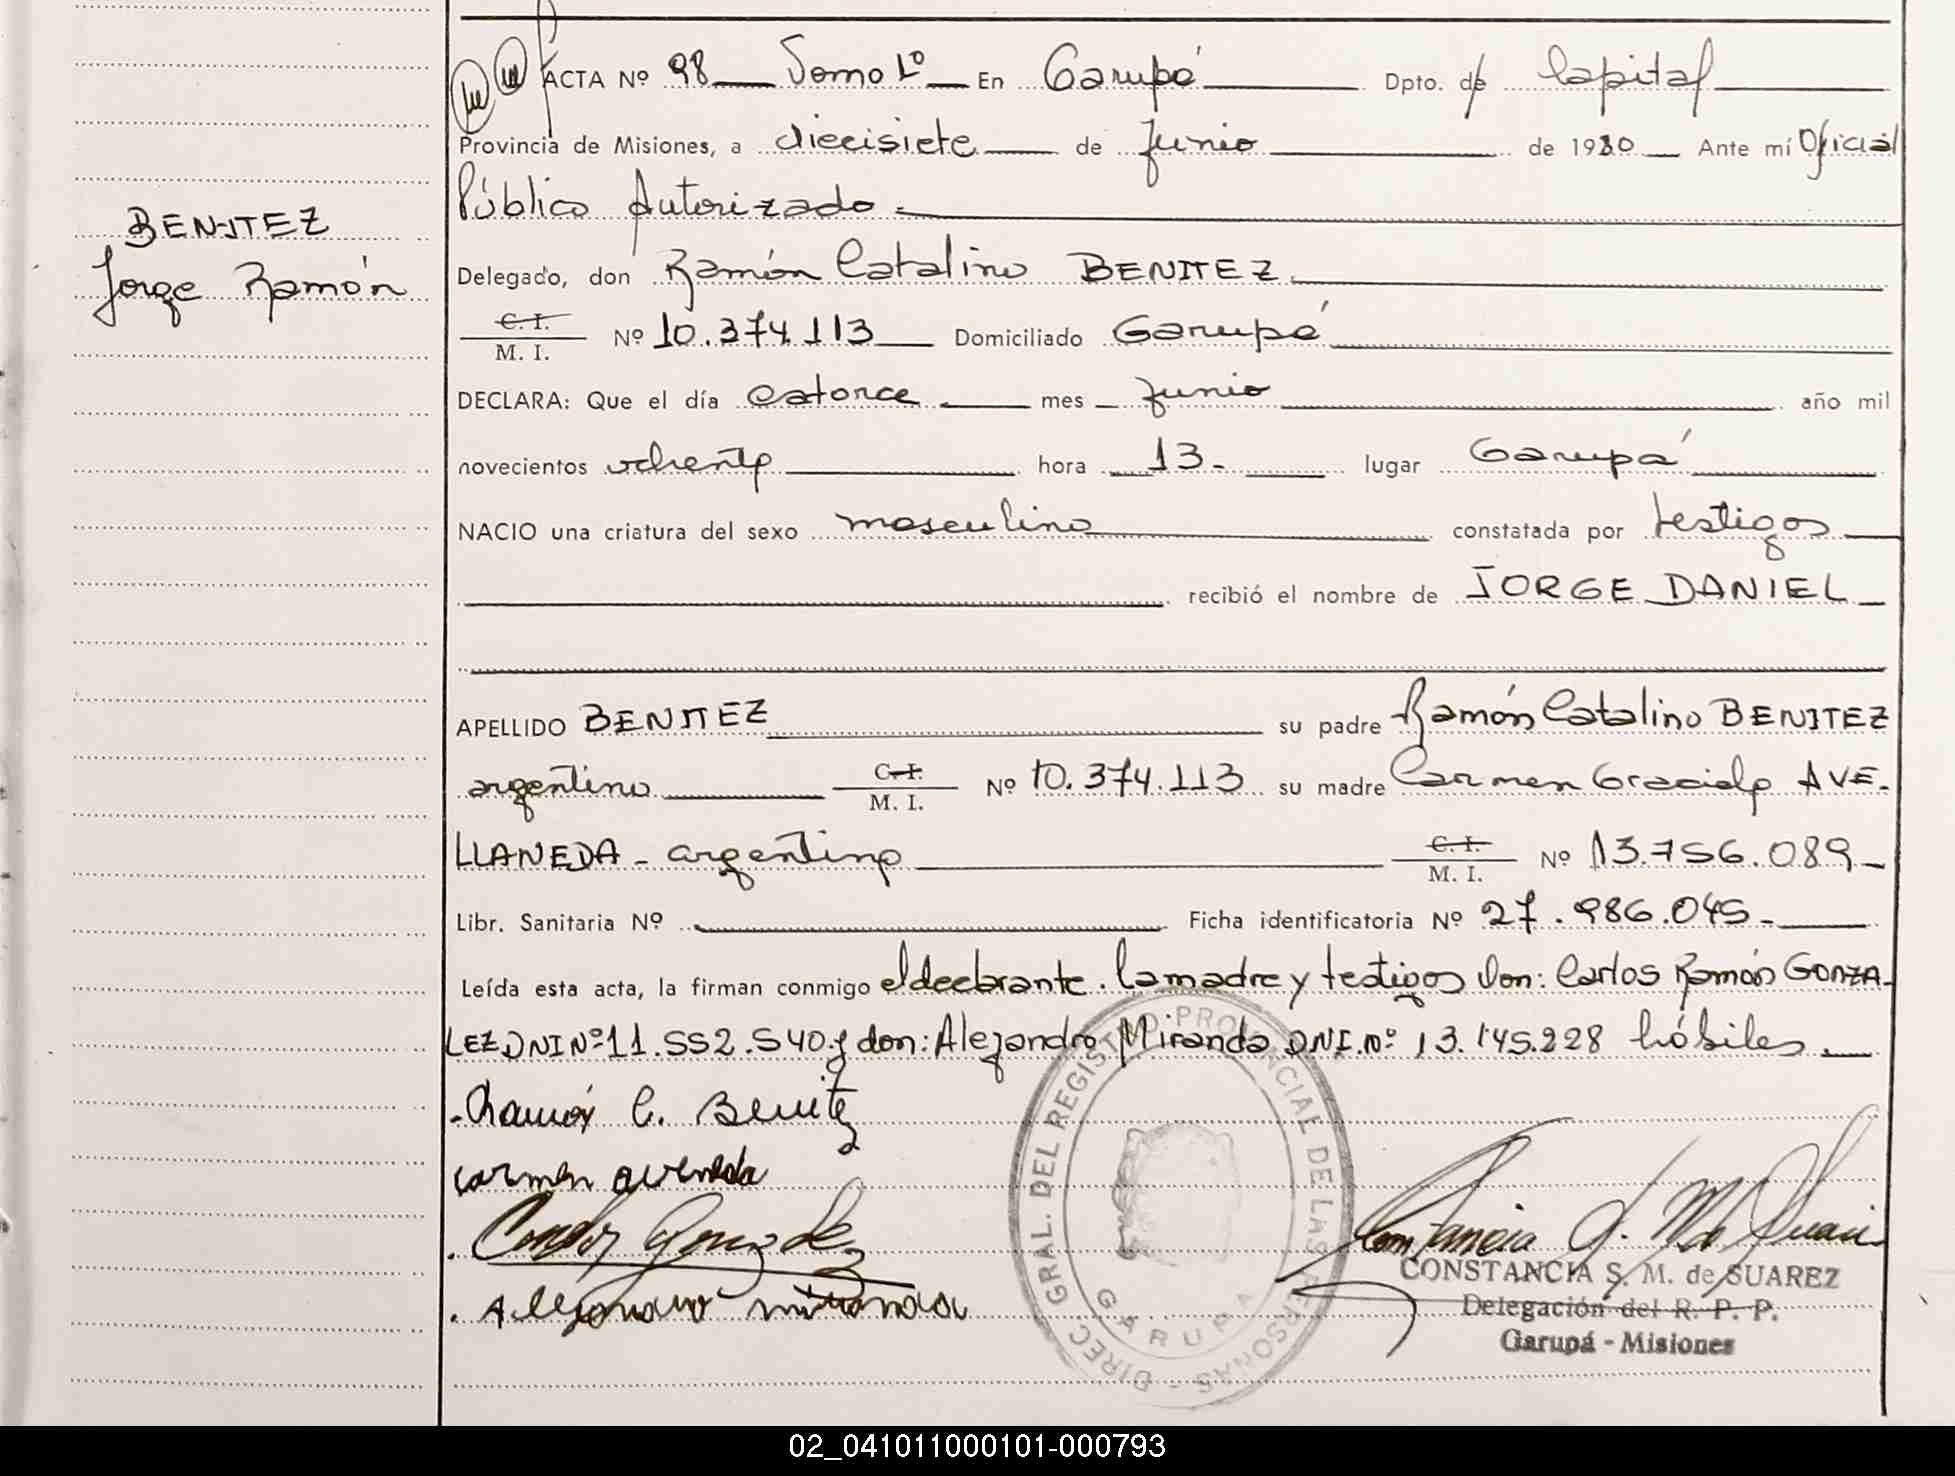 ACTA Nº 98 Tomo 1º En Garupá Dpto. de Capital
Provincia de Misiones, a diecisiete de Junio de 1980 Ante mí Oficial
Público Autorizado.
BENITEZ
Jorge Ramón
Delegado, don Ramón Catalino BENITEZ
C. I.
M. I. Nº 10.374.113 Domiciliado Garupá
DECLARA: Que el día catorce mes Junio año mil
novecientos ochenta hora 13. lugar Garupá
NACIO una criatura del sexo masculino constatada por testigos
recibió el nombre de JORGE DANIEL
APELLIDO BENITEZ su padre Ramón Catalino BENITEZ
argentino C. I. M. I. Nº 10.374.113 su madre Carmen Graciela AVE-
LLANEDA - argentina C. I. M. I. Nº 13.756.089
Libr. Sanitaria Nº Ficha identificatoria Nº 27.986.045-
Leída esta acta, la firman conmigo el declarante. la madre y testigos Don: Carlos Ramón GONZA-
LEZ DNI Nº 11.552.540 y don: Alejandro Miranda DNI.Nº 13.145.228 hábiles
Ramón C. Benitez
carmen
Carlos Gonzalez
Alejandro miranda
DIREC. GRAL. DEL REGISTRO PROVINCIAL DE LAS PERSONAS -
GARUPA
CONSTANCIA S. M. de SUAREZ
Delegación del R. P. P.
Garupá - Misiones
02_041011000101-000793